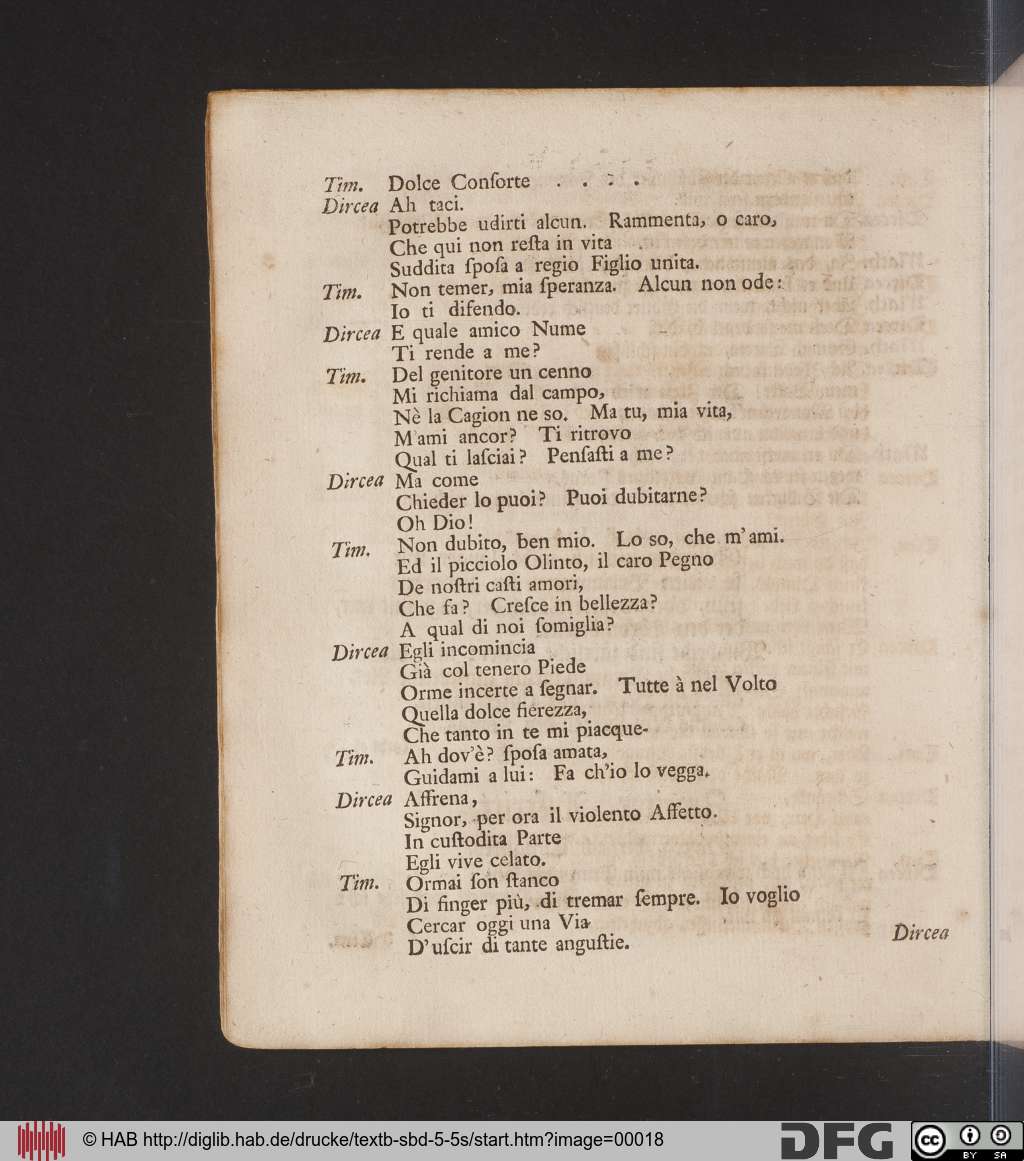 Tim. Dolce Conſorte . . . .
Dircea Ah taci.
Potrebbe udirti alcun. Rammenta, o caro,
Che qui non reſta in vita
Suddita ſpoſa a regio Figlio unita.
Tim. Non temer, mia ſperanza. Alcun non ode:
Io ti difendo.
Dircea E quale amico Nume
Ti rende a me?
Tim. Del genitore un cenno
Mi richiama dal campo,
Nè la Cagion ne so. Ma tu, mia vita,
M'ami ancor? Ti ritrovo
Qual ti laſciai? Penſaſti a me?
Dircea Ma come
Chieder lo puoi? Puoi dubitarne?
Oh Dio!
Tim. Non dubito, ben mio. Lo so, che m'ami.
Ed il picciolo Olinto, il caro Pegno
De noſtri caſti amori,
Che fa? Creſce in bellezza?
A qual di noi ſomiglia?
Dircea Egli incomincia
Già col tenero Piede
Orme incerte a ſegnar. Tutte à nel Volto
Quella dolce fierezza,
Che tanto in te mi piacque-
Tim. Ah dov'è? ſpoſa amata,
Guidami a lui: Fa ch'io lo vegga.
Dircea Affrena,
Signor, per ora il violento Affetto.
In cuſtodita Parte
Egli vive celato.
Tim. Ormai ſon ſtanco
Di finger più, di tremar ſempre. Io voglio
Cercar oggi una Via
D'uſcir di tante anguſtie.
Dircea
© HAB http://diglib.hab.de/drucke/textb-sbd-5-5s/start.htm?image=00018
DFG
cc BY SA